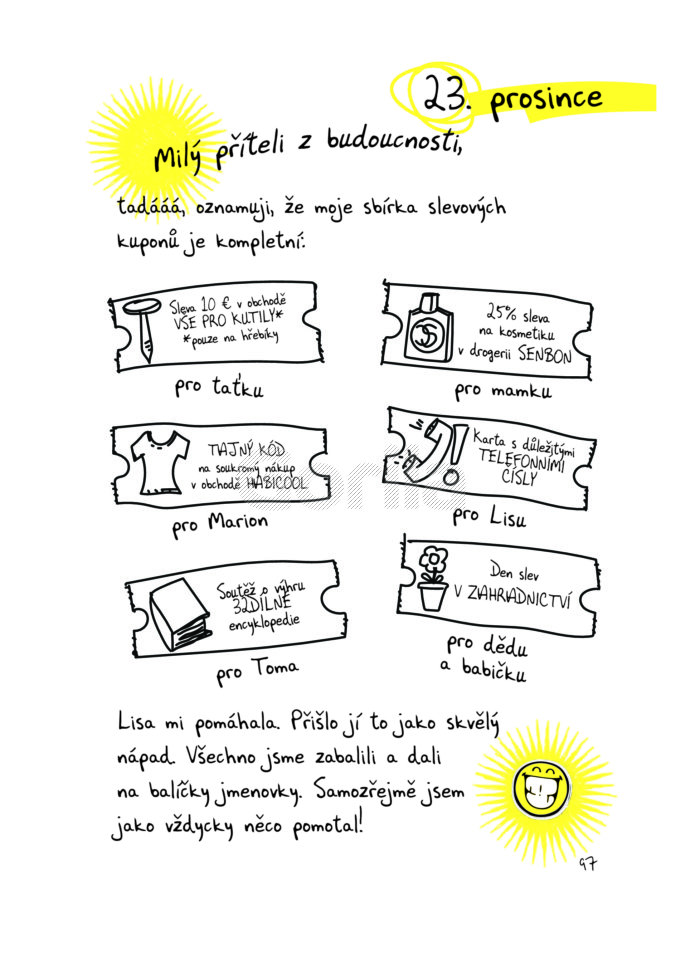 23. prosince
Milý příteli z budoucnosti,
tadááá, oznamuji, že moje sbírka slevových
kuponů je kompletní:
Sleva 10 € v obchodě
VŠE PRO KUTILY*
*pouze na hřebíky
pro taťku
25% sleva
na kosmetiku
v drogerii SENBON
pro mamku
TAJNÝ KÓD
na soukromý nákup
v obchodě HABICOOL
pro Marion
Karta s důležitými
TELEFONNÍMI
ČÍSLY
pro Lisu
Soutěž o výhru
32DÍLNÉ
encyklopedie
pro Toma
Den slev
V ZAHRADNICTVÍ
pro dědu
a babičku
Lisa mi pomáhala. Přišlo jí to jako skvělý
nápad. Všechno jsme zabalili a dali
na balíčky jmenovky. Samozřejmě jsem
jako vždycky něco pomotal!
97